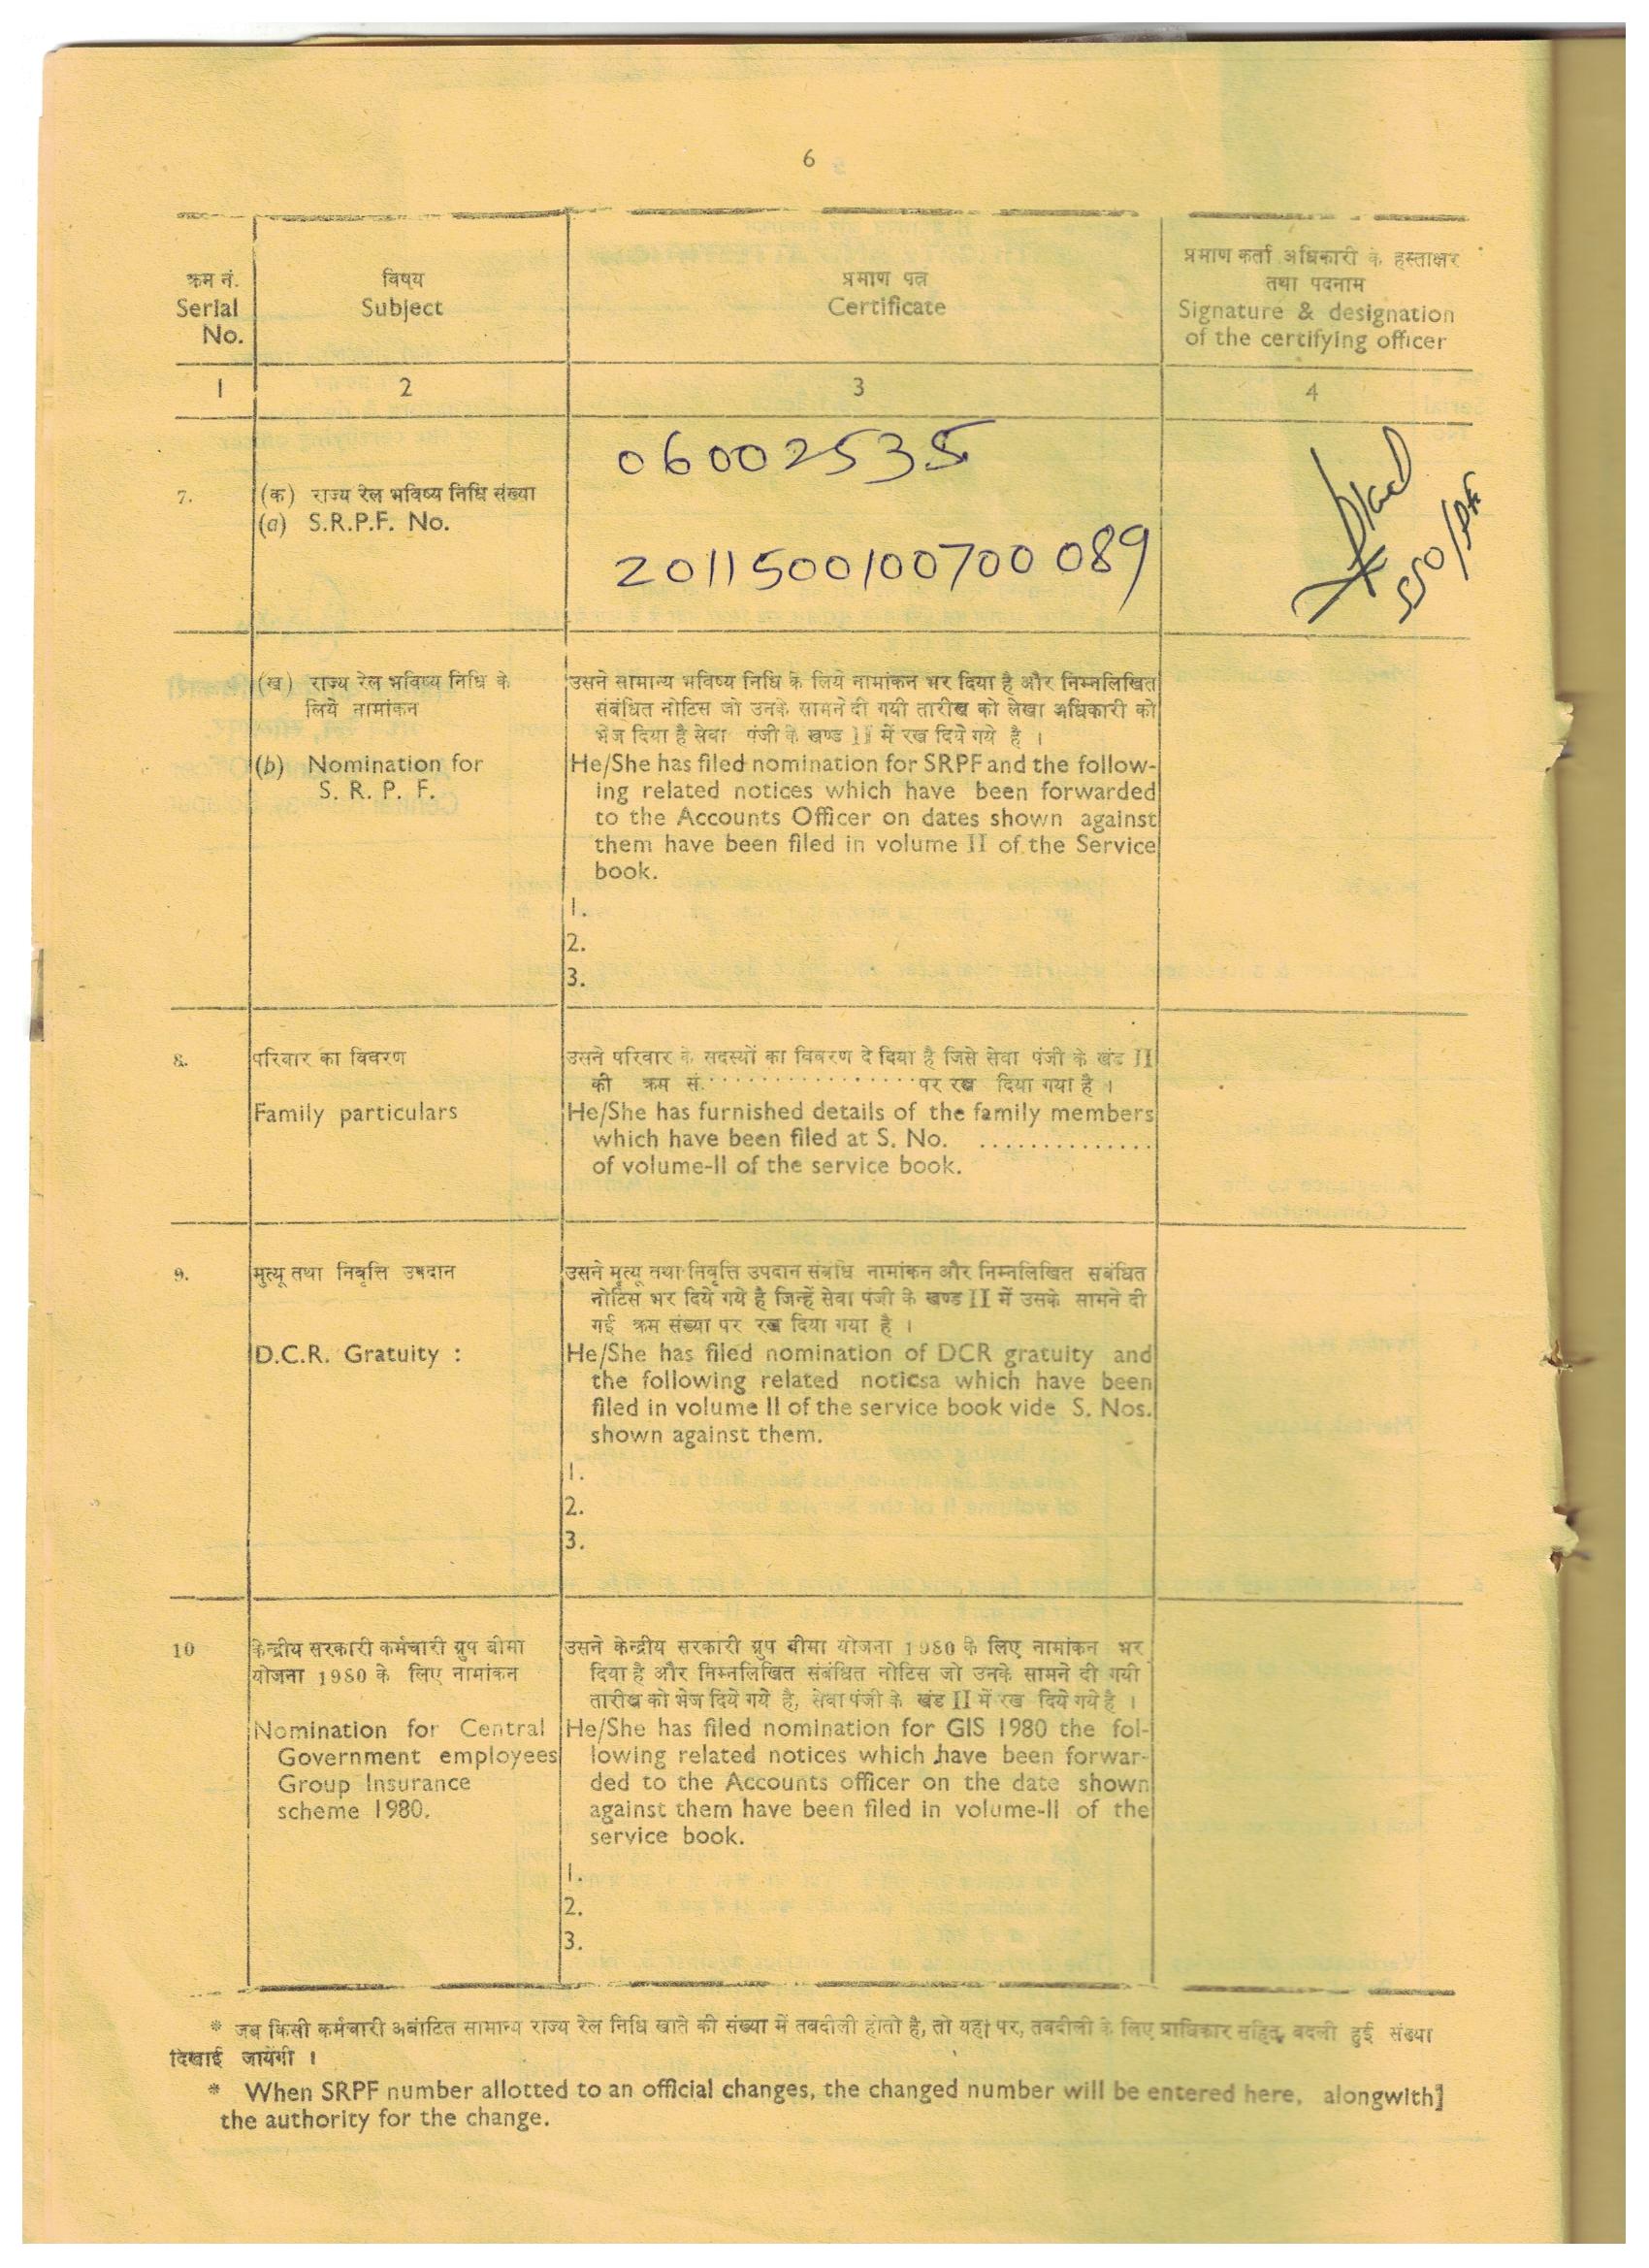 6
क्रम नं.
Serial
No.
विषय
Subject
प्रमाण पत्र
Certificate
प्रमाण कर्ता अधिकारी के हस्ताक्षर
तथा पदनाम
Signature & designation
of the certifying officer
1
2
3
4
06002535
7.
(क) राज्य रेल भविष्य निधि संख्या
(a) S.R.P.F. No.
2011500100700089
(ख) राज्य रेल भविष्य निधि के
लिये नामांकन
(b) Nomination for
S. R. P. F.
उसने सामान्य भविष्य निधि के लिये नामांकन भर दिया है और निम्नलिखित
संबंधित नोटिस जो उनके सामने दी गयी तारीख को लेखा अधिकारी को
भेज दिया है सेवा पंजी के खण्ड II में रख दिये गये है ।
He/She has filed nomination for SRPF and the follow-
ing related notices which have been forwarded
to the Accounts Officer on dates shown against
them have been filed in volume II of the Service
book.
1.
2.
3.
8.
परिवार का विवरण
Family particulars
उसने परिवार के सदस्यों का विवरण दे दिया है जिसे सेवा पंजी के खंड II
की क्रम सं. ................ पर रख दिया गया है ।
He/She has furnished details of the family members
which have been filed at S. No. ..............
of volume-II of the service book.
9.
मुत्यू तथा निवृत्ति उपदान
D.C.R. Gratuity :
उसने मृत्यू तथा निवृत्ति उपदान संबधि नामांकन और निम्नलिखित सबंधित
नोटिस भर दिये गये है जिन्हें सेवा पंजी के खण्ड II में उसके सामने दी
गई क्रम संख्या पर रख दिया गया है ।
He/She has filed nomination of DCR gratuity and
the following related noticsa which have been
filed in volume II of the service book vide S. Nos.
shown against them.
1.
2.
3.
10
केन्द्रीय सरकारी कर्मचारी ग्रुप बीमा
योजना 1980 के लिए नामांकन
Nomination for Central
Government employees
Group Insurance
scheme 1980.
उसने केन्द्रीय सरकारी ग्रुप बीमा योजना 1980 के लिए नामांकन भर
दिया है और निम्नलिखित संबंधित नोटिस जो उनके सामने दी गयी
तारीख को भेज दिये गये है, सेवा पंजी के खंड II में रख दिये गये है ।
He/She has filed nomination for GIS 1980 the fol-
lowing related notices which have been forwar-
ded to the Accounts officer on the date shown
against them have been filed in volume-II of the
service book.
1.
2.
3.
* जब किसी कर्मचारी अबांटित सामान्य राज्य रेल निधि खाते की संख्या में तबदीली होतो है, तो यहां पर, तबदीली के लिए प्राधिकार सहित, बदली हुई संख्या
दिखाई जायेगी ।
* When SRPF number allotted to an official changes, the changed number will be entered here, alongwith]
the authority for the change.